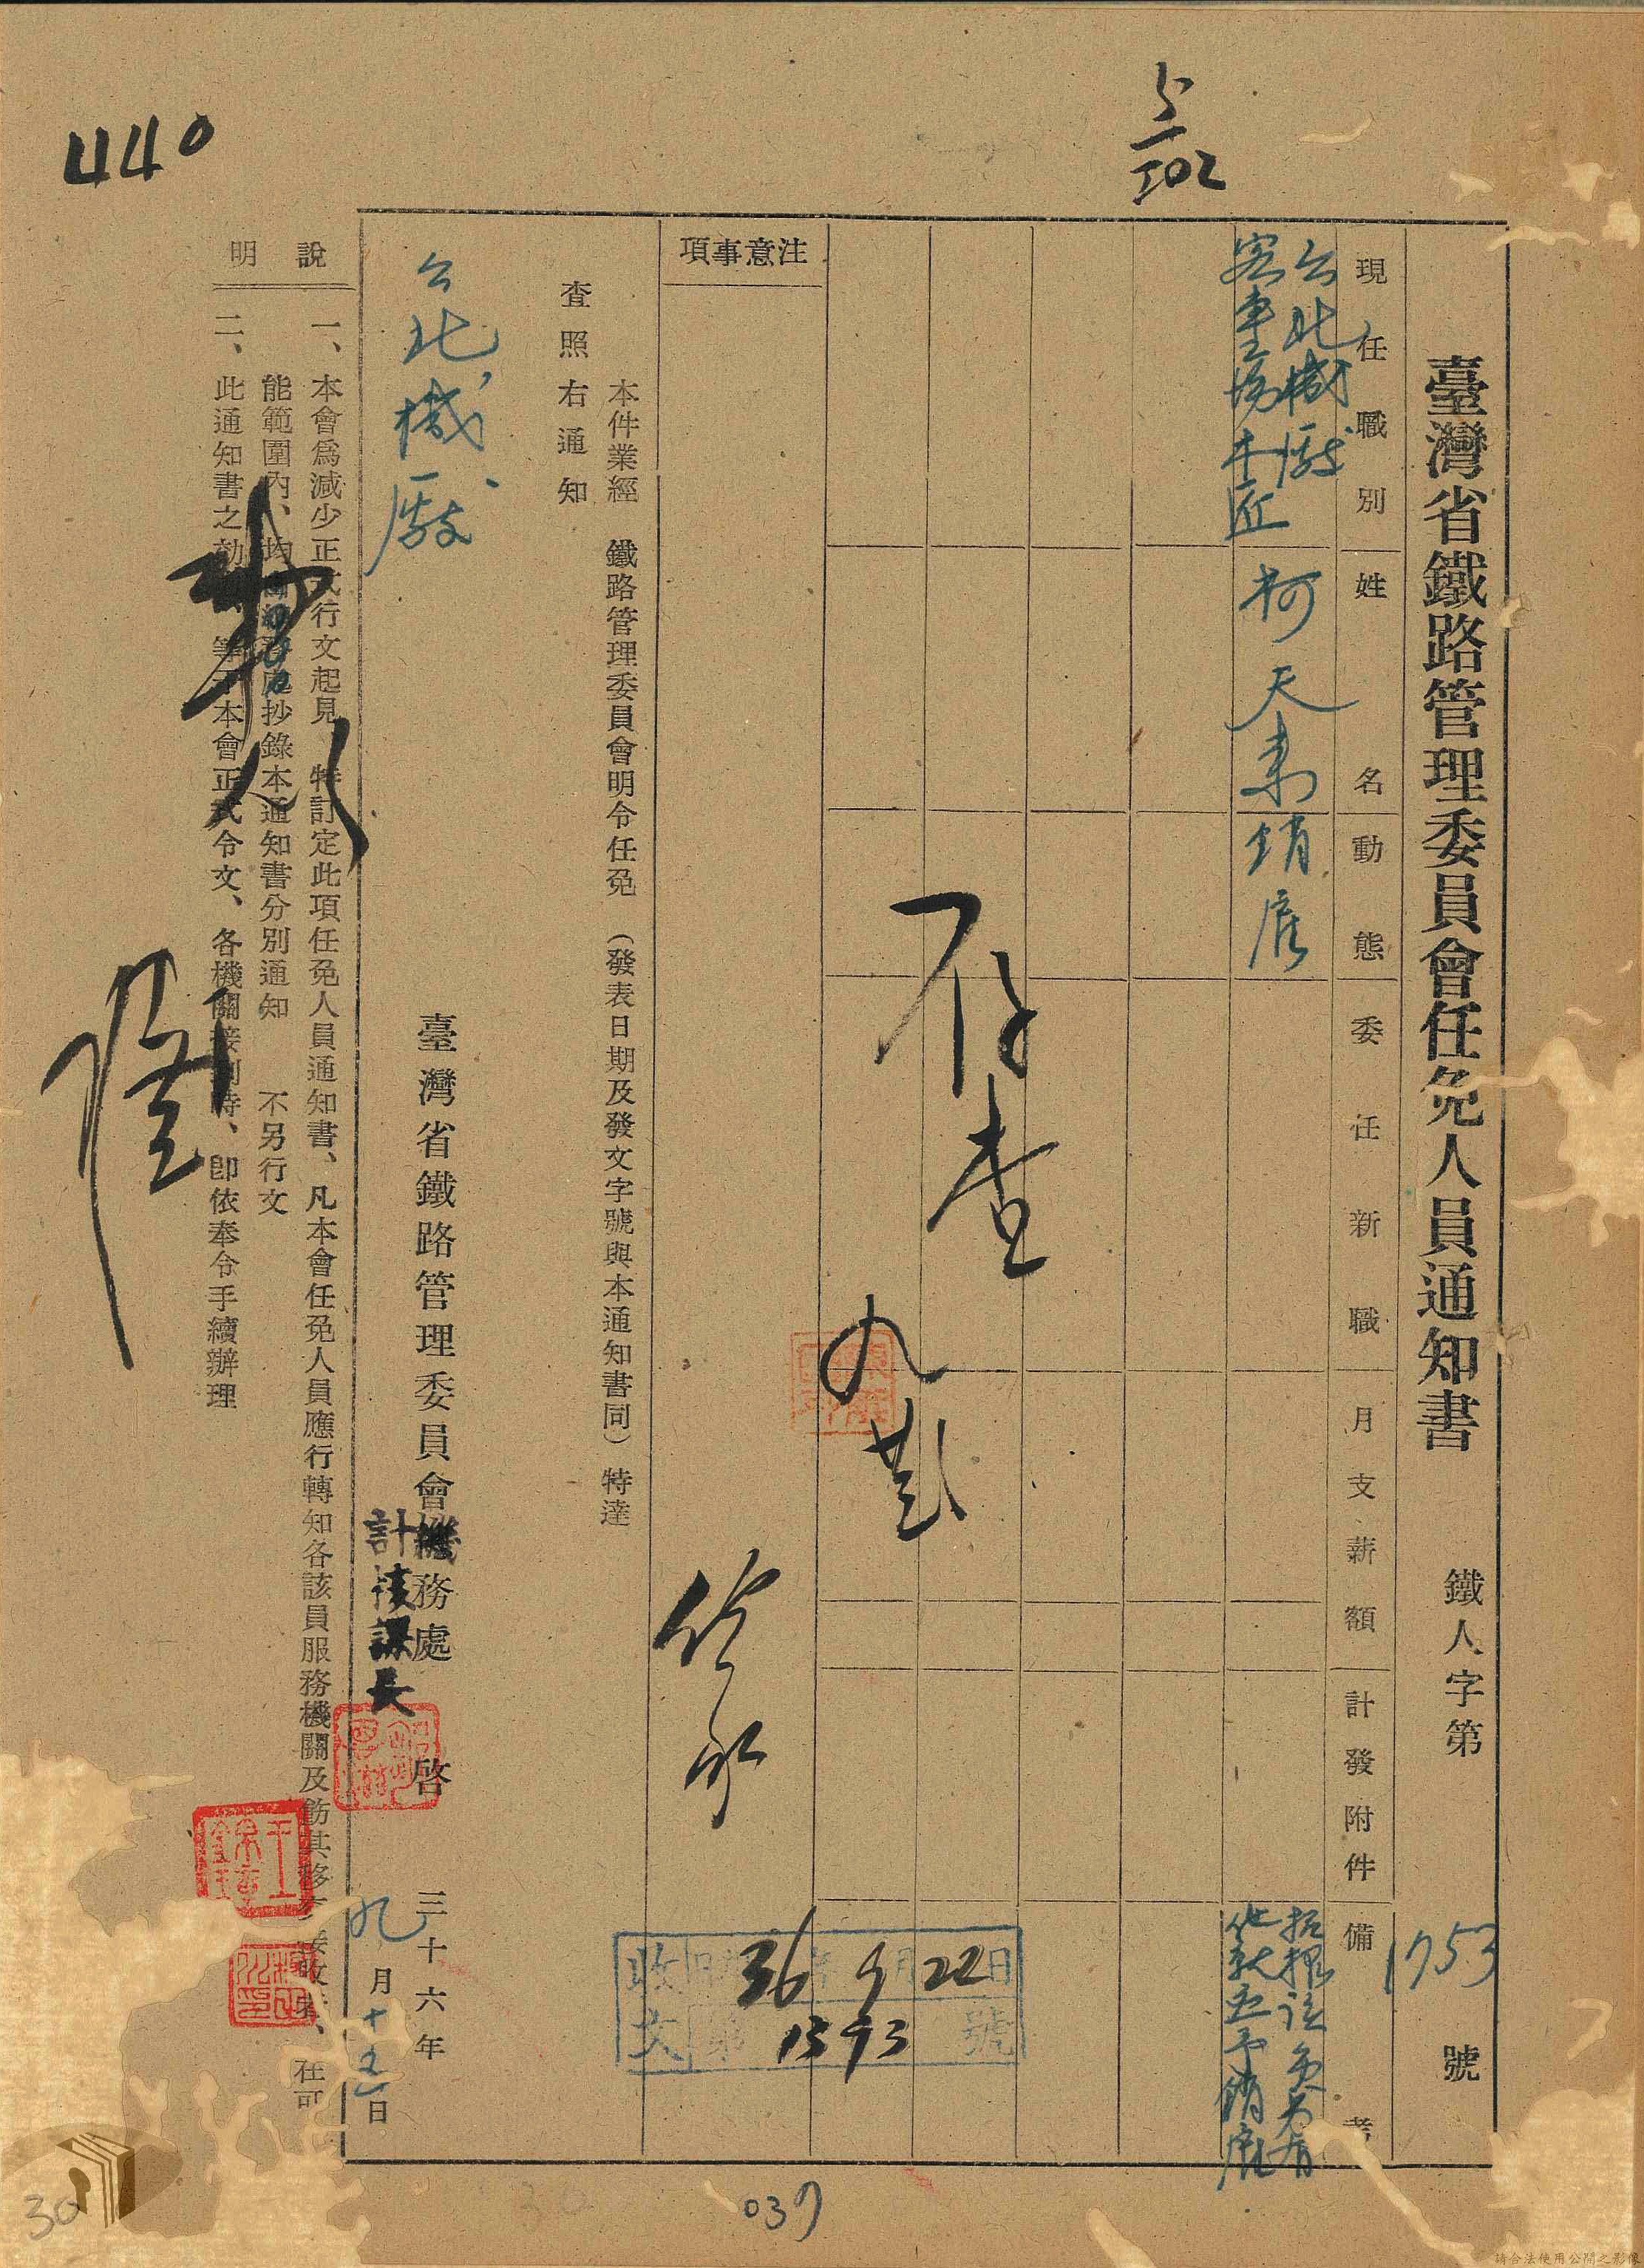 440
5/502
臺灣省鐵路管理委員會任免人員通知書
鐵人字第1753號
現任職別
姓名
動態
委任新職
月支薪額
計發附件
備考
台北機廠
客車場木匠
柯天素
銷雇
拒擢該員另有
他就應予銷雇
存查
注意事項
本件業經 鐵路管理委員會明令任免(發表日期及發文字號與本通知書同)特達
查照右通知
台北機廠
臺灣省鐵路管理委員會機務處 啓
計核課長
三十六年
九月十五日
收文
36年9月22日
第1593號
說明
一、本會爲減少正式行文起見 特訂定此項任免人員通知書、凡本會任免人員應行轉知各該員服務機關及飭其移交接收者、在可
能範圍內、均由 處抄錄本通知書分別通知 不另行文
二、此通知書之効 等於本會正式令文、各機關接到時、卽依奉令手續辦理
30
037
請合法使用公開之影像